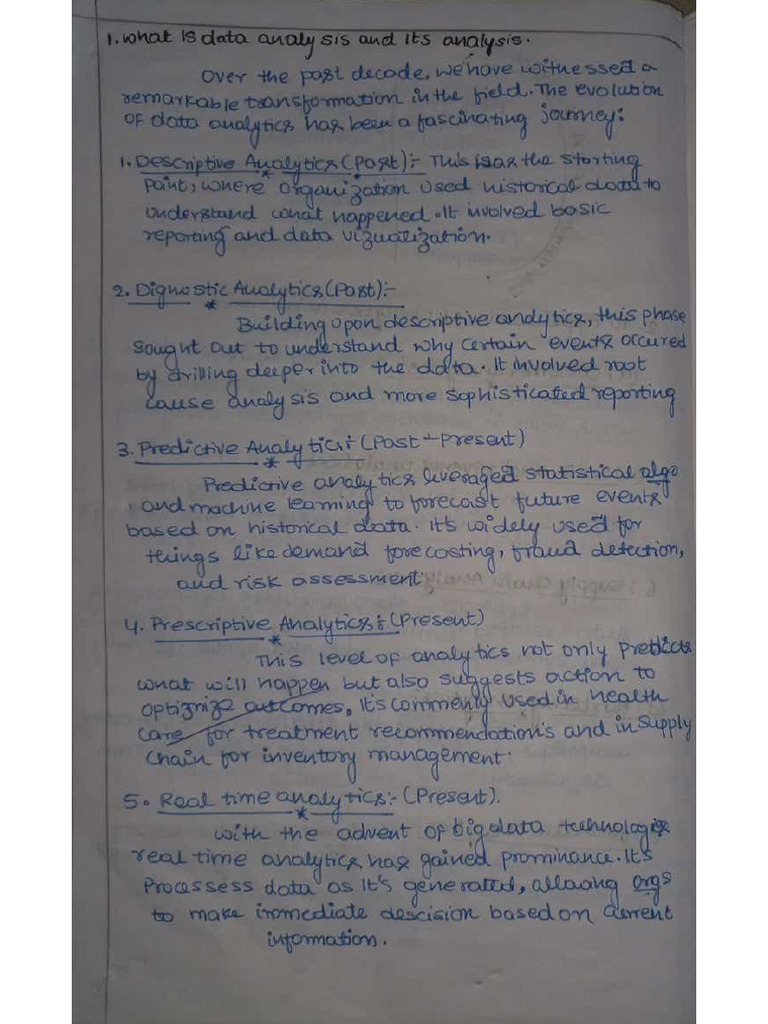 1. What is data analysis and its analysis.
Over the past decade, we have witnessed a
remarkable transformation in the field. The evolution
of data analytics has been a fascinating journey:
1. Descriptive Analytics (Past):- This is as the starting
point, where organization used historical data to
understand what happened. It involved basic
reporting and data vizualization.
2. Dignostic Analytics (Past):-
Building upon descriptive analytics, this phase
sought out to understand why certain events occured
by drilling deeper into the data. It involved root
cause analysis and more sophisticated reporting
3. Predictive Analytics: (Past - Present)
Predictive analytics leveraged statistical algo
and machine learning to forecast future events
based on historical data. It's widely used for
things like demand forecasting, fraud detection,
and risk assessment.
4. Prescriptive Analytics: (Present)
This level of analytics not only predicts
what will happen but also suggests action to
optignize outcomes, It's commenly used in health
care for treatment recommendation's and in supply
chain for inventory management.
5. Real time analytics:- (Present).
With the advent of big data technologies
real time analytics has gained prominance. It's
Processess data as It's generated, allowing orgs
to make immediate descision based on current
information.